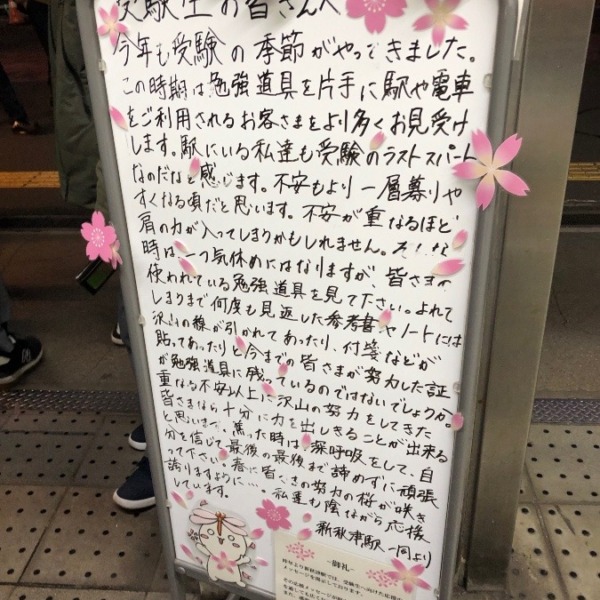 受験生の皆さんへ
今年も受験の季節がやってきました。
この時期は勉強道具を片手に駅や電車
をご利用されるお客さまをより多くお見受け
します。駅にいる私達も受験のラストスパート
なのだなと感じます。不安もより一層募りや
すくなる頃だと思います。不安が重なるほど
肩の力が入ってしまうかもしれません。そんな
時は、一つ気休めにはなりますが、皆さまの
使われている勉強道具を見て下さい。よれて
しまうまで何度も見返した参考書やノートには
沢山の線が引かれてあったり、付箋などが
貼ってあったりと今までの皆さまが努力した証
が勉強道具に残っているのではないでしょうか。
重なる不安以上に沢山の努力をしてきた
皆さまなら十分に力を出しきることが出来る
と思います。焦った時は、深呼吸をして、自
分を信じて最後の最後まで諦めずに頑張
って下さい。春に皆さまの努力の桜が咲き
誇りますように…。私達も陰ながら応援
しています。
新秋津駅一同より
-御礼-